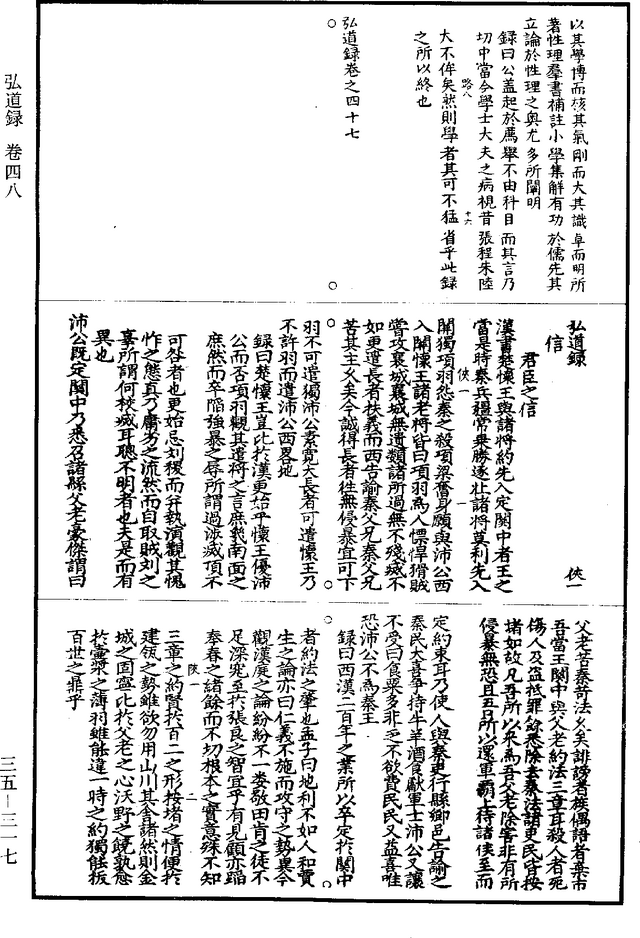 弘道録　卷四八
三五－三一七
以其學博而核其氣剛而大其識卓而明所
著性理羣書補註小學集解有功於儒先其
立論於性理之奥尤多所闡明
録曰公蓋起於薦舉不由科目而其言乃
切中當今學士大夫之病視昔張程朱陸
路八
十六
大不侔矣然則學者其可不猛省乎此録
之所以終也
弘道録卷之四十七
弘道録
信
俠一
君臣之信
漢書楚懷王與諸將約先入定關中者王之
當是時秦兵彊常乘勝逐北諸將莫利先入
俠一
一
關獨項羽怨秦之殺項梁奮身願與沛公西
入關懷王諸老將皆曰項羽爲人慓悍猾賊
嘗攻襄城襄城無遺類諸所過無不殘滅不
如更遣長者扶義而西告諭秦父兄秦父兄
苦其主久矣今誠得長者往無侵暴宜可下
羽不可遣獨沛公素寬大長者可遣懷王乃
不許羽而遣沛公西畧地
録曰楚懷王豈比於漢更始乎懷王優沛
公而否項羽觀其遣將之言庶幾南面之
庶然而卒陷強暴之辱所謂過涉滅頂不
可咎者也更始忌刘稷而并執演觀其愧
怍之態真乃庸劣之流然而自取賊刘之
辜所謂何校滅耳聰不明者也夫是而有
異也
沛公既定關中乃悉召諸縣父老豪傑謂曰
父老苦秦苛法久矣誹謗者族偶語者棄市
吾當王關中與父老約法三章耳殺人者死
傷人及盜抵罪餘悉除去秦法諸吏民皆按
堵如故凡吾所以來爲吾父老除害非有所
侵暴無恐且吾所以還軍霸上待諸侯至而
定約束耳乃使人與秦吏行縣鄉邑告諭之
秦民大喜爭持牛羊酒食獻軍士沛公又讓
不受曰食粟多非乏不欲費民民又益喜唯
恐沛公不爲秦王
録曰西漢二百年之業所以卒定於關中
者約法之肇也孟子曰地利不如人和賈
生之論亦曰仁義不施而攻守之勢異今
觀漢庭之論紛紛不一婁敬田肯之徒不
足深咎至於張良之智宜乎有見顧亦蹈
奉春之緒餘而不切根本之實意殊不知
陜一
二
三章之約賢於百二之形按堵之情便於
建瓴之勢雖欲勿用山川其舍諸然則金
城之固寧比於父老之心沃野之饒孰愈
於壺漿之薄羽雖能違一時之約獨能扳
百世之鼎乎